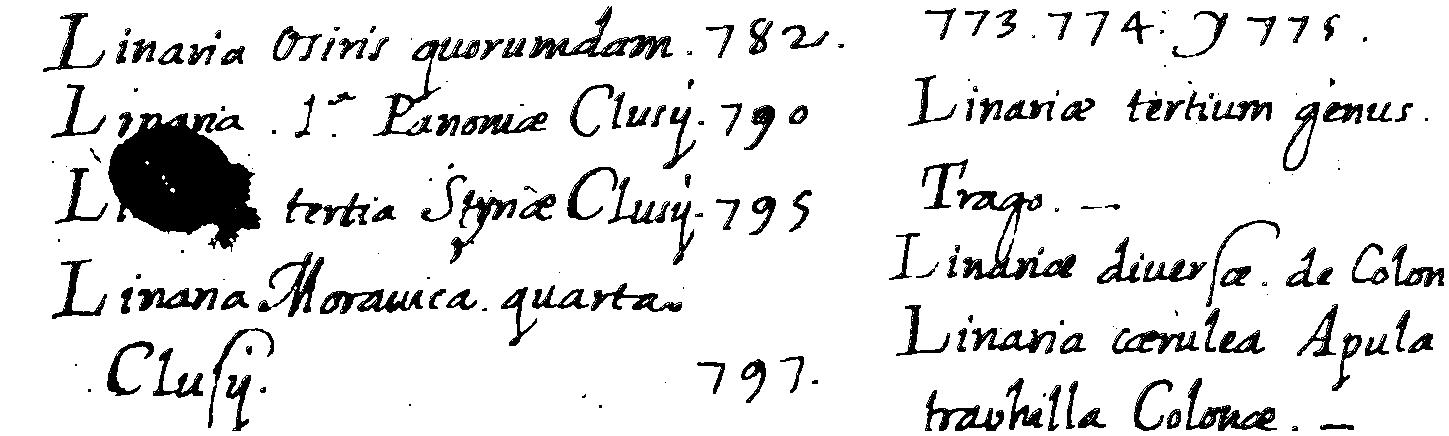 Linaria Osiris quorumdam. 782.
Linaria. 1ª. Panoniæ Clusij. 790
tertia Styriæ Clusij. 795
Linaria Morauica. quarta
Clusij. 797.
773. 774. y 775.
Linariæ tertium genus.
Trago. —
Linariæ diuersæ. de Colon
Linaria cærulea Apula
Colonæ. —